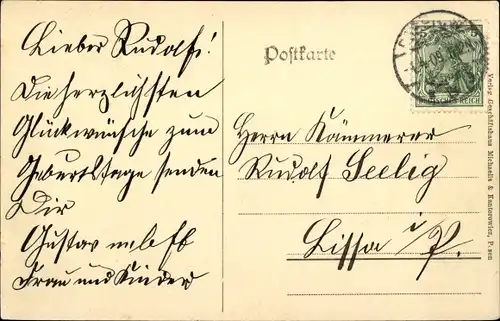 Lieber Rudolf!
Die herzlichsten
Glückwünsche zum
Geburtstage senden
Dir
Gustav nebst
Frau und Kinder
Postkarte
Herrn Kämmerer
Rudolf Seelig
Lissa i/P.
DEUTSCHES REICH
Verlag Geschäftshaus Michaelis & Kantorowicz, Posen